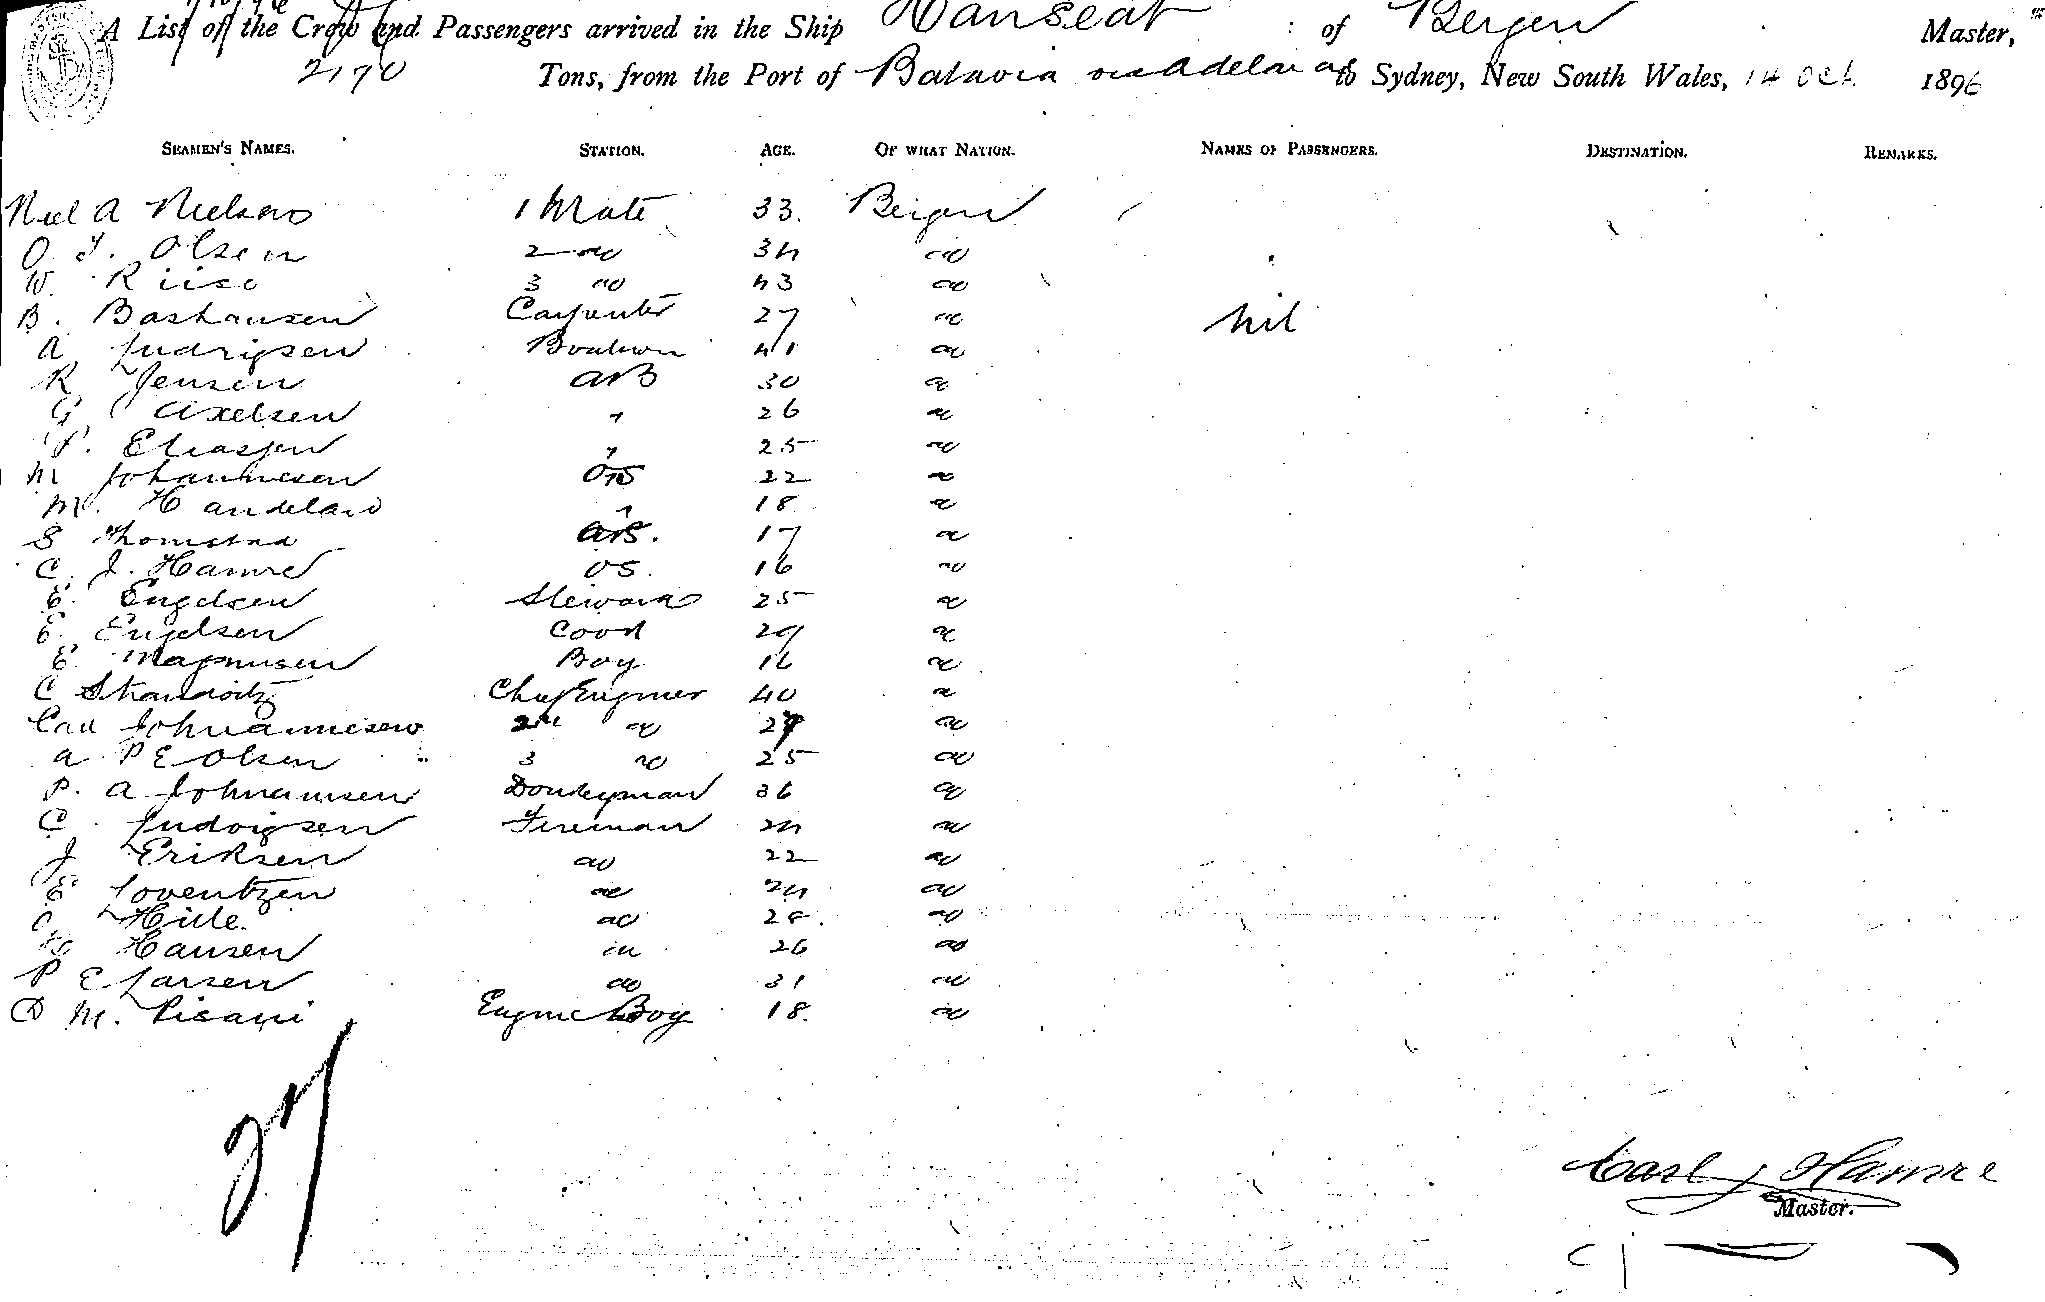 A List of the Crew and Passengers arrived in the Ship Hanseat of Bergen Master,
2170 Tons, from the Port of Batavia via Adelaide to Sydney, New South Wales, 14 Oct 1896
SEAMEN'S NAMES. STATION. AGE. OF WHAT NATION. NAMES OF PASSENGERS. DESTINATION. REMARKS.
Niel A Nielsen 1 Mate 33. Bergen
O. T. Olsen 2 do 34 do
W. Riise 3 do 43 do
B. Bashansen Carpenter 27 do nil
A Ludvigsen Boatswn 41 do
R Jensen AB 30 do
G Axelsen " 26 do
P. Eliassen " 25 do
M Johannesen OS 22 do
M. Handeland " 18 do
S Thomstad 17 do
C. J. Hamre OS. 16 do
E. Engelsen Steward 25 do
E. Engelsen Cook 29 do
E. Magnusen Boy 16 do
C Chief Engineer 40 do
Carl Johannesen 2nd do 27 do
A P E Olsen 3 do 25 do
P. A Johannesen Donkeyman 36 do
C. Ludvigsen Fireman 24 do
J Eriksen do 22 do
E Loventzen do 24 do
Hille. do 28. do
Hansen do 26 do
P E Larsen do 31 do
D M. Pisani Engine Boy 18. do
27
Carl J Hamre
Master.